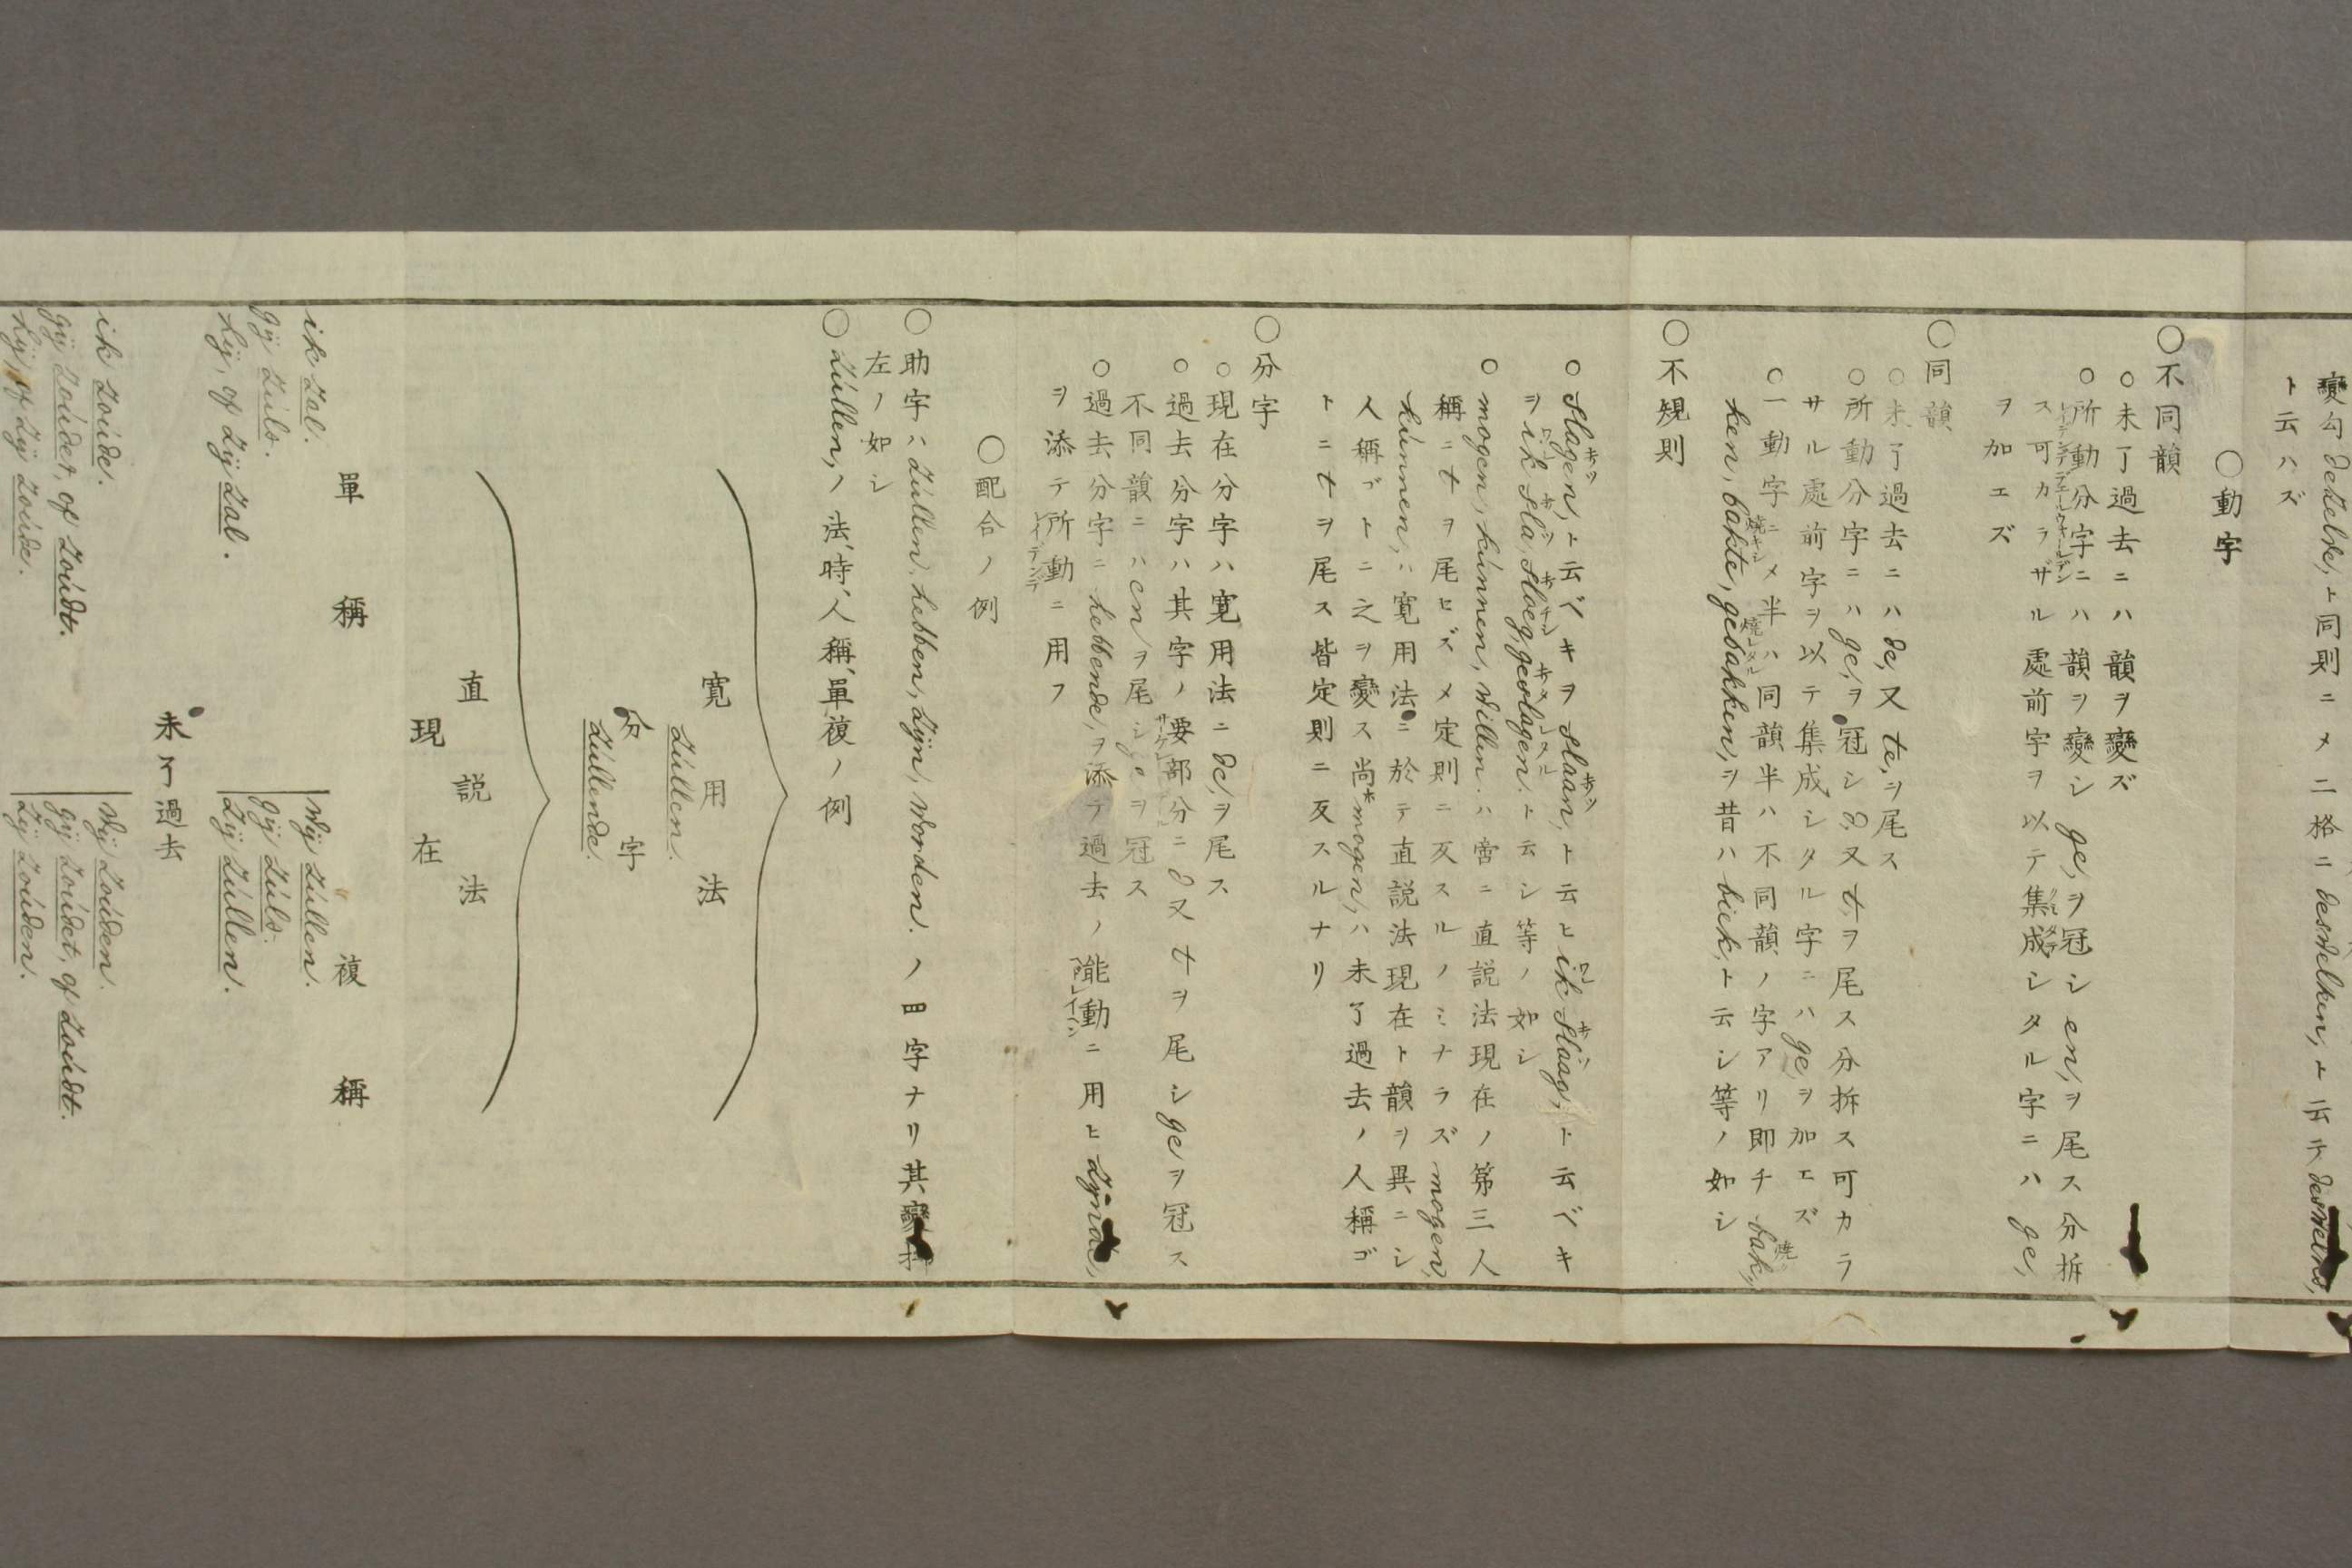 變勾 deszelve, ト同則ニメ二格ニ deszelken, ト云テ
ト云ハズ
〇動字
〇不同韻
○未了過去ニハ韻ヲ變ズ
○所動分字ニハ韻ヲ變シ ge, ヲ冠シ en, ヲ尾ス分拆
ス可カラザル處前字ヲ以テ集成シタル字ニハ ge,
ヲ加エズ
〇同韻
○未了過去ニハ de, 又 te, ヲ尾ス
○所動分字ニハ ge, ヲ冠シ d, 又 t, ヲ尾ス分拆ス可カラ
サル處前字ヲ以テ集成シタル字ニハ ge, ヲ加エズ
○一動字ニメ半ハ同韻半ハ不同韻ノ字アリ即チ bak,
ken, bakte, gebakken, ヲ昔ハ biek, ト云シ等ノ如シ
〇不規則
○slagen, ト云ベキヲ slaan, ト云ヒ ik slaag, ト云ベキ
ヲ ik sla, sloeg, geslagen. ト云シ等ノ如シ
○mogen, kúnnen, willen. ハ啻ニ直説法現在ノ第三人
稱ニ t ヲ尾セズメ定則ニ反スルノミナラズ mogen,
kúnnen, ハ寛用法ニ於テ直説法現在ト韻ヲ異ニシ
人稱ゴトニ之ヲ變ス尚* mogen, ハ未了過去ノ人稱ゴ
トニ t ヲ尾ス皆定則ニ反スルナリ
〇分字
○現在分字ハ寛用法ニ de, ヲ尾ス
○過去分字ハ其字ノ要部分ニ d 又 t ヲ尾シ ge ヲ冠ス
不同韻ニハ en ヲ尾シ ge ヲ冠ス
○過去分字ニ hebbende, ヲ添テ過去ノ能動ニ用ヒ zijnde,
ヲ添テ所動ニ用フ
〇配合ノ例
〇助字ハ zúllen, hebben, zijn, worden. ノ四字ナリ其變
左ノ如シ
〇zúllen, ノ法、時、人稱、單複ノ例
寛用法
zúllen.
分字
zúllende.
直説法
現在
單稱 複稱
ik zal. wij zúllen.
gij zúls. gij zúls.
hij, of zij zal. zij zúllen.
未了過去
ik zoúde. wij zoúden.
gij zoúdet, of zoúdt. gij zoúdet, of zoúdt.
hij, of zij zoúde. zij zoúden.